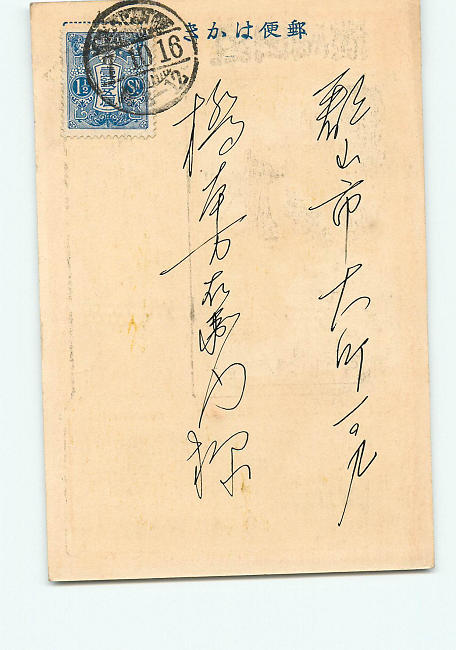 郵便はかき
10.16
1½ SN
郡山市大町一の九
橋本万右衛門様